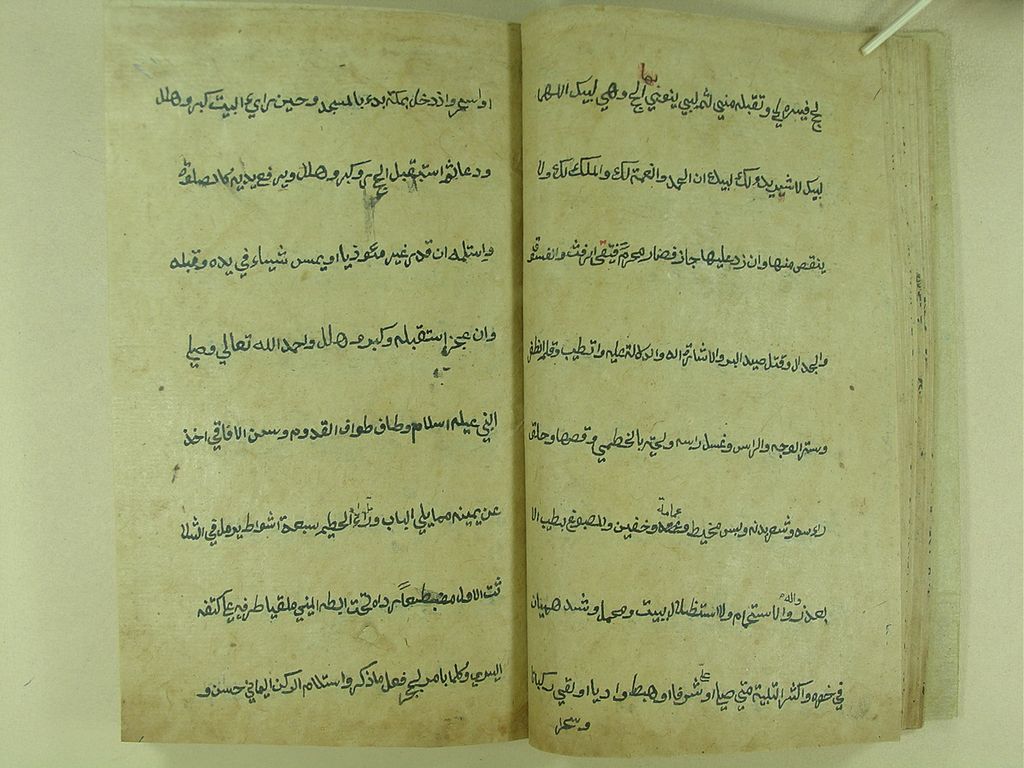 لج فيسره لي وتقبله مني ثم لبي ينوي بها الحج وهي لبيك اللهم
لبيك لا شريك لك لبيك ان الحمد والنعمة لك والملك لك ولا
ينقص منها وان زد عليها جاز فصار محرم فيتقى الرفث والفسق
والجدال وقتل صيد البر والاشارة اليه والدلالة عليه والتطيب وقلم الظفر
وستر الوجه والراس وغسل راسه ولحيته بالخطمي وقصها وحلق
راءسه وشعر بدنه ولبس مخيط وعمامة وخفين والمصبوغ بطيب الا
بعد زواله والاستحمام ولا استظلال ببيت ومحمل وشد هميان
في خصره واكثر التلبية متى صلى او على شرفا او هبط واديا او لقي ركبانا
و سحرا
او اسحر واذ دخل بمكة بدء بالمسجد وحين راىء البيت كبر وهلل
ودعا ثم استقبل الحجر وكبر وهلل ويرفع يديه كالصلوة
واستلمه ان قدر غير مؤذيا او يمس شيئاء في يده وقبله
وان عجز استقبله وكبر وهلل وحمد الله تعالي وصلي
النبي عيله اسلام وطاف طواف القدوم وسن الافاقي اخذ
عن يمينه مما يلي الباب وراء الحطيم سبعة اشواط يرمل في الثلا
ثت الاول مضطبعا رداه تحت ابطه اليمني ملقيا طرفيه على كتفه
اليسري وكلما بامر لحجر فعل ما ذكر واستلام الركن اليماني حسن و